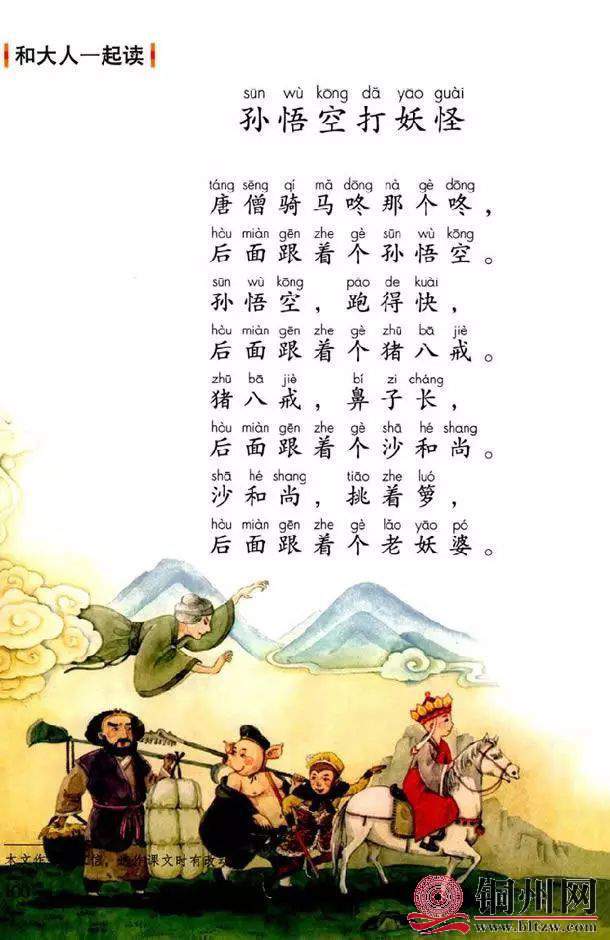 和大人一起读
sūn wù kōng dǎ yāo guài
孙悟空打妖怪
táng sēng qí mǎ dōng nà gè dōng
唐僧骑马咚那个咚，
hòu miàn gēn zhe gè sūn wù kōng
后面跟着个孙悟空。
sūn wù kōng pǎo de kuài
孙悟空，跑得快，
hòu miàn gēn zhe gè zhū bā jiè
后面跟着个猪八戒。
zhū bā jiè bí zi cháng
猪八戒，鼻子长，
hòu miàn gēn zhe gè shā hé shang
后面跟着个沙和尚。
shā hé shang tiāo zhe luó
沙和尚，挑着箩，
hòu miàn gēn zhe gè lǎo yāo pó
后面跟着个老妖婆。
本文作 课文时有改
100
铜州网
www.bltzw.com